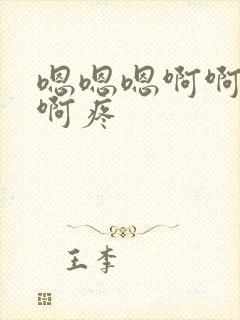 嗯嗯嗯啊啊
啊疼
王李